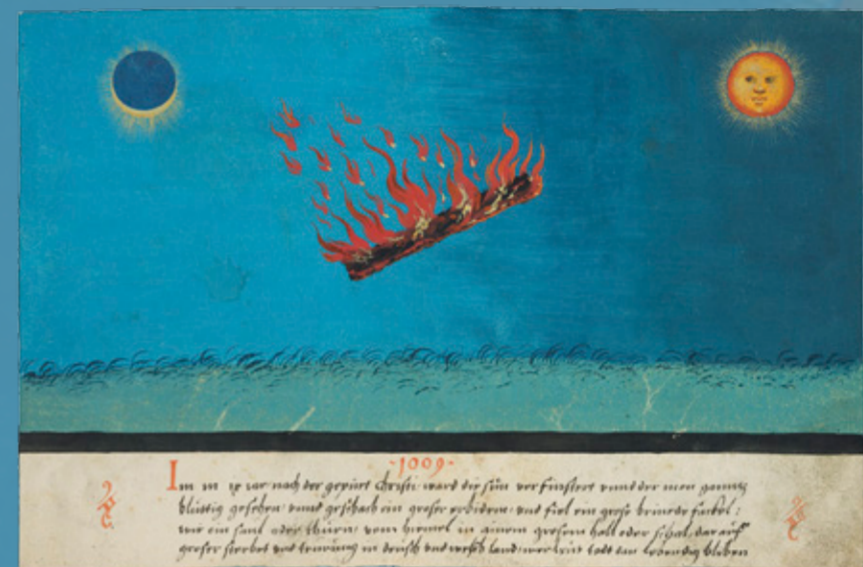 ·1009·
Im m ix iar nach der gepurt Christi ward die sun verfinstert vnnd der mon gantz
bluttig gesehen: vnnd geschach ein groser erbidem: vnd fiel ein grose brinende fackel:
wie ein saul oder thurn: vom hiemel in ainem grosem hall oder schal, darauff
groser sterbet vnd teurung in deutsch vnd welsch land: